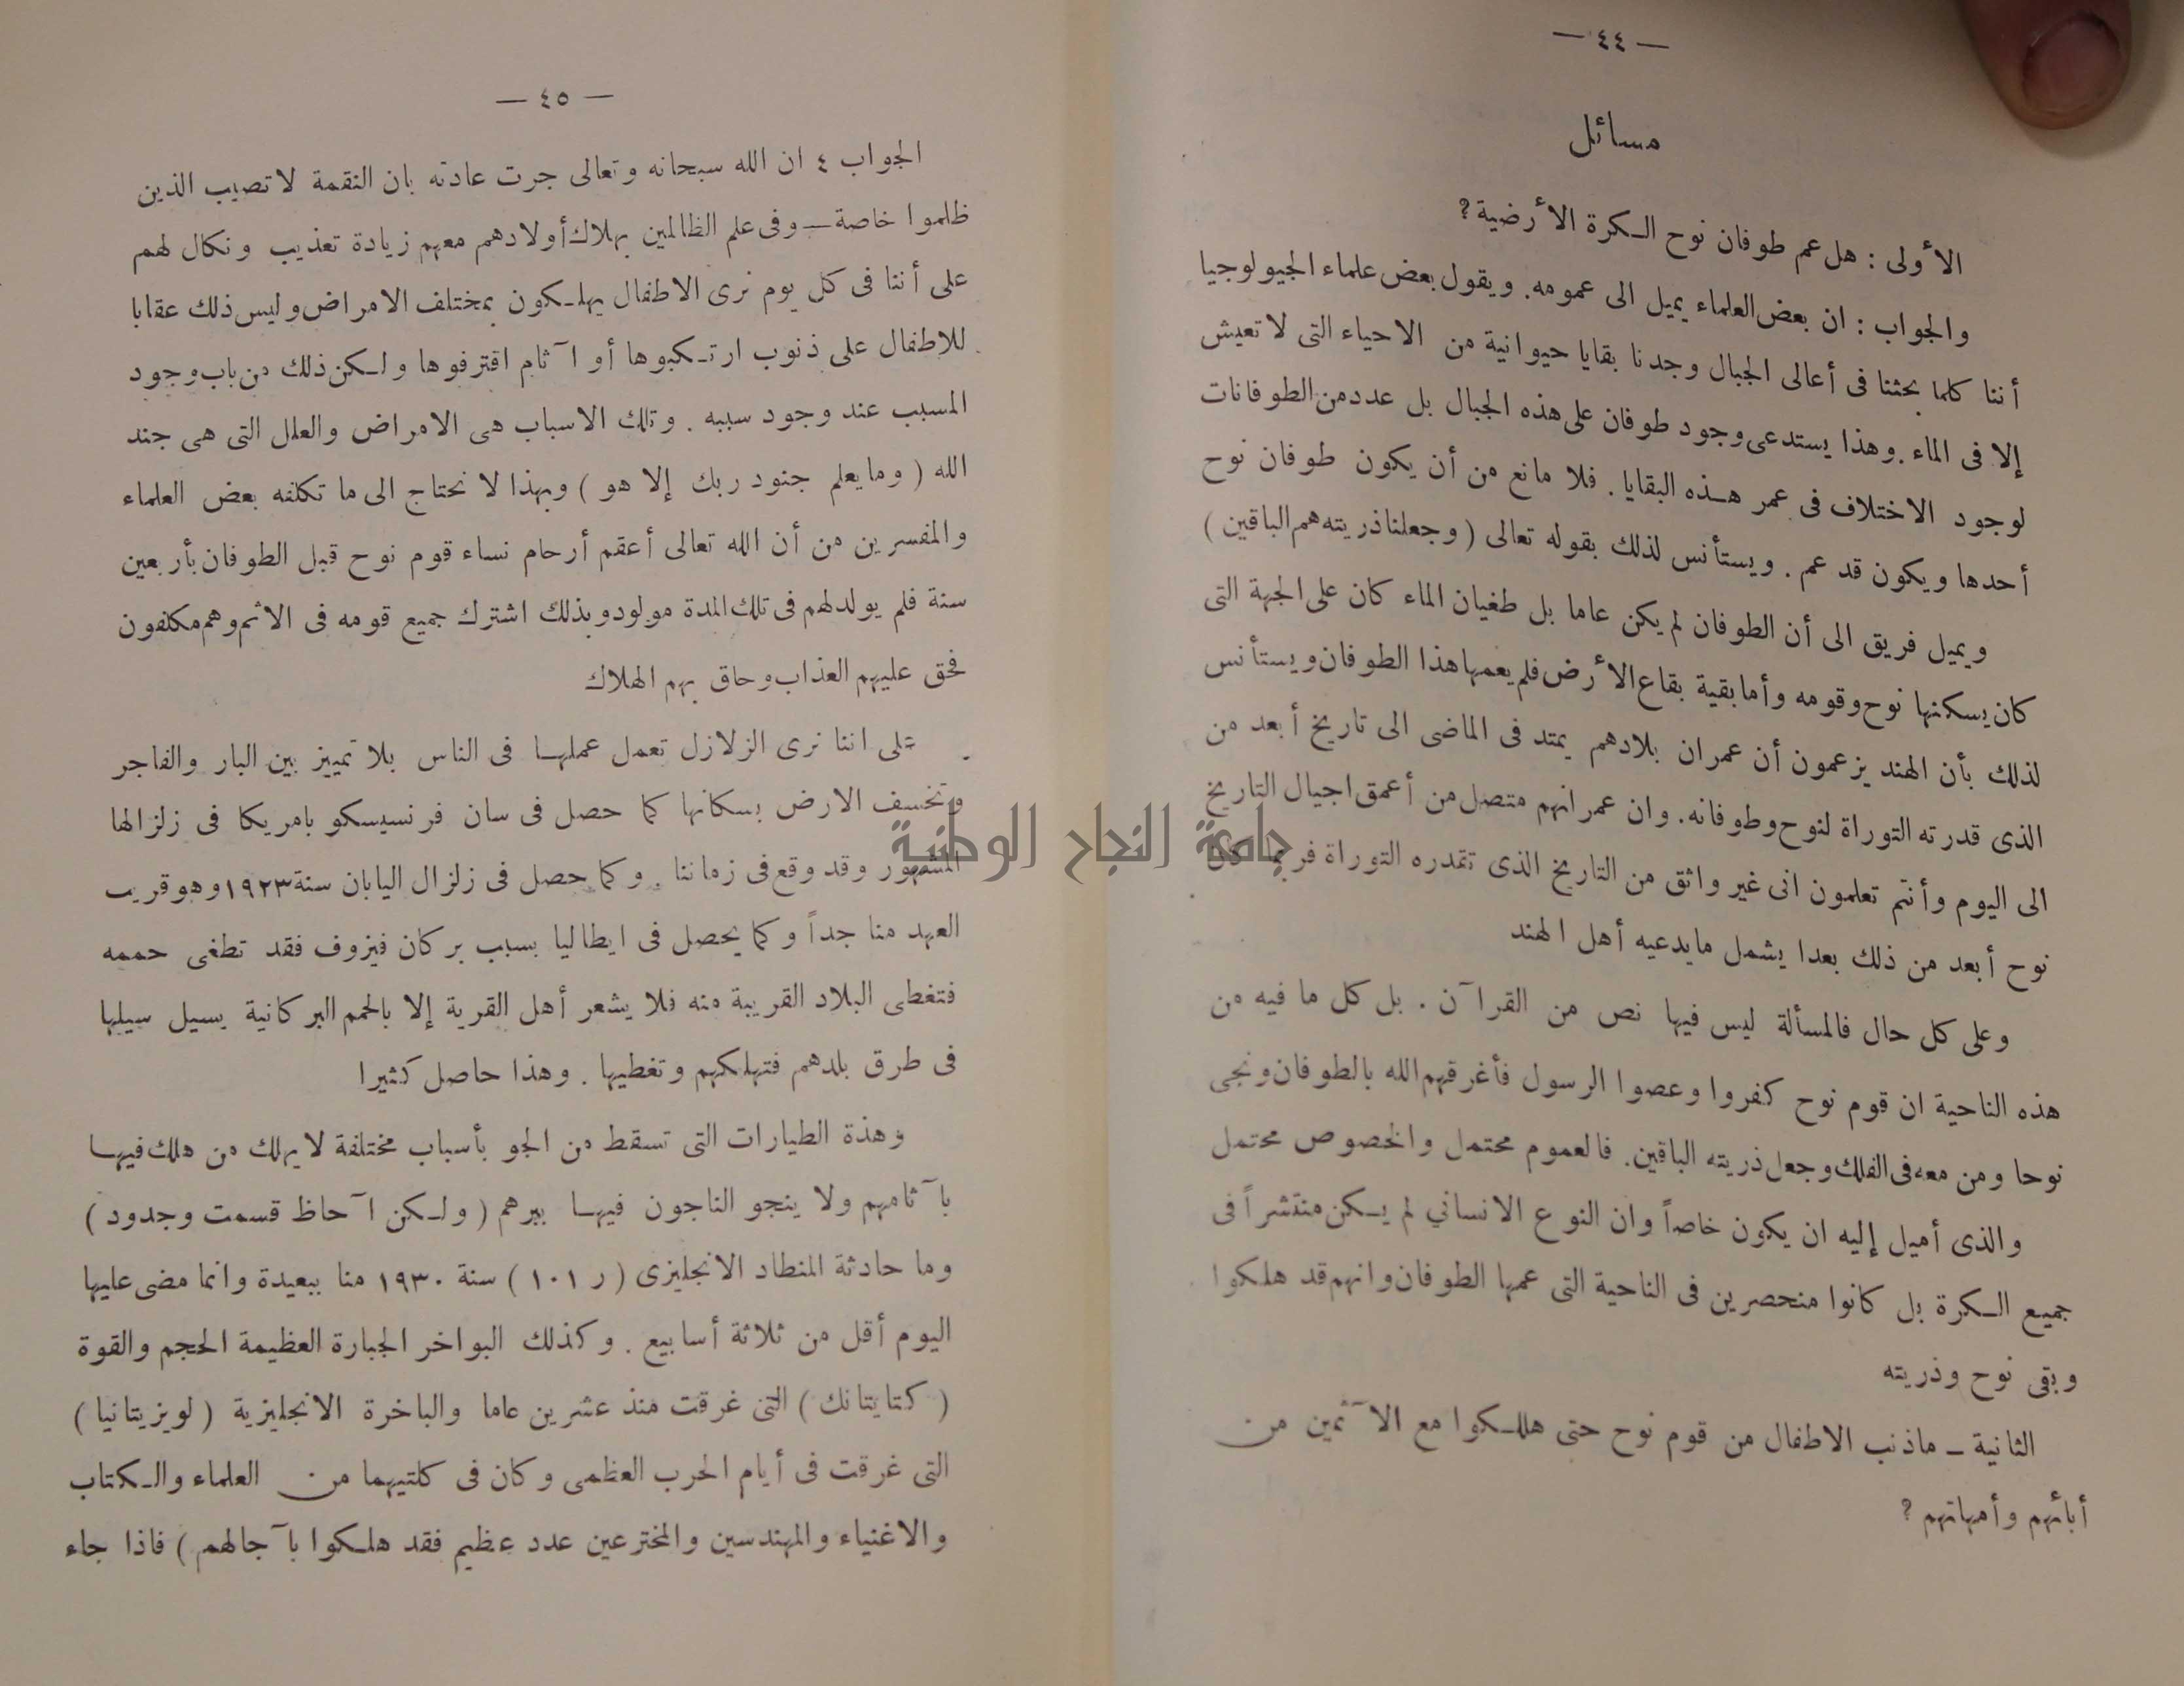 — ٤٤ —
مسائل
الأولى : هل عم طوفان نوح الكرة الأرضية ؟
والجواب : ان بعض العلماء يميل الى عمومه . ويقول بعض علماء الجيولوجيا
أننا كلما بحثنا فى أعالى الجبال وجدنا بقايا حيوانية من الاحياء التى لا تعيش
إلا فى الماء . وهذا يستدعى وجود طوفان على هذه الجبال بل عدد من الطوفانات
لوجود الاختلاف فى عمر هذه البقايا . فلا مانع من أن يكون طوفان نوح
أحدها ويكون قد عم . ويستأنس لذلك بقوله تعالى ( وجعلنا ذريته هم الباقين )
ويميل فريق الى أن الطوفان لم يكن عاما بل طغيان الماء كان على الجهة التى
كان يسكنها نوح وقومه وأما بقية بقاع الأرض فلم يعمها هذا الطوفان ويستأنس
لذلك بأن الهند يزعمون أن عمران بلادهم يمتد فى الماضى الى تاريخ أبعد من
الذى قدرته التوراة لنوح وطوفانه . وان عمرانهم متصل من أعمق اجيال التاريخ
الى اليوم وأنتم تعلمون انى غير واثق من التاريخ الذى تقدره التوراة فربما كان
نوح أبعد من ذلك بعدا يشمل ما يدعيه أهل الهند
وعلى كل حال فالمسألة ليس فيها نص من القرآن . بل كل ما فيه من
هذه الناحية ان قوم نوح كفروا وعصوا الرسول فأغرقهم الله بالطوفان ونجى
نوحا ومن معه فى الفلك وجعل ذريته الباقين . فالعموم محتمل والخصوص محتمل
والذى أميل إليه ان يكون خاصاً وان النوع الانسانى لم يكن منتشراً فى
جميع الكرة بل كانوا منحصرين فى الناحية التى عمها الطوفان وانهم قد هلكوا
وبقى نوح وذريته
الثانية – ما ذنب الاطفال من قوم نوح حتى هللكوا مع الآثمين من
أبائهم وأمهاتهم ؟
— ٤٥ —
الجواب ٤ ان الله سبحانه وتعالى جرت عادته بان النقمة لا تصيب الذين
ظلموا خاصة — وفى علم الظالمين بهلاك أولادهم معهم زيادة تعذيب ونكال لهم
على أننا فى كل يوم نرى الاطفال يهلكون بمختلف الامراض وليس ذلك عقابا
للاطفال على ذنوب ارتكبوها أو آثام اقترفوها ولكن ذلك من باب وجود
المسبب عند وجود سببه . وتلك الاسباب هى الامراض والعلل التى هى جند
الله ( وما يعلم جنود ربك إلا هو ) وبهذا لا نحتاج الى ما تكلفه بعض العلماء
والمفسرين من أن الله تعالى أعقم أرحام نساء قوم نوح قبل الطوفان بأربعين
سنة فلم يولد لهم فى تلك المدة مولود وبذلك اشترك جميع قومه فى الاثم وهم مكلفون
فحق عليهم العذاب وحاق بهم الهلاك
على اننا نرى الزلازل تعمل عملها فى الناس بلا تمييز بين البار والفاجر
وتخسف الارض بسكانها كما حصل فى سان فرنسيسكو بامريكا فى زلزالها
المشهور وقد وقع فى زماننا . وكما حصل فى زلزال اليابان سنة ١٩٢٣ وهو قريب
العهد منا جداً وكما يحصل فى ايطاليا بسبب بركان فيزوف فقد تطغى حممه
فتغطى البلاد القريبة منه فلا يشعر أهل القرية إلا بالحمم البركانية يسيل سيلها
فى طرق بلدهم فتهلكهم وتغطيها . وهذا حاصل كثيرا
وهذة الطيارات التى تسقط من الجو بأسباب مختلفة لا يهلك من هلك فيها
بآثامهم ولا ينجو الناجون فيها ببرهم ( ولكن آحاظ قسمت وجدود )
وما حادثة المنطاد الانجليزى ( ر ١٠١ ) سنة ١٩٣٠ منا ببعيدة وانما مضى عليها
اليوم أقل من ثلاثة أسابيع . وكذلك البواخر الجبارة العظيمة الحجم والقوة
( كتايتانك ) التى غرقت منذ عشرين عاما والباخرة الانجليزية ( لويزيتانيا )
التى غرقت فى أيام الحرب العظمى وكان فى كلتيهما من العلماء والكتاب
والاغنياء والمهندسين والمخترعين عدد عظيم فقد هلكوا بآجالهم ) فاذا جاء
جامعة النجاح الوطنية